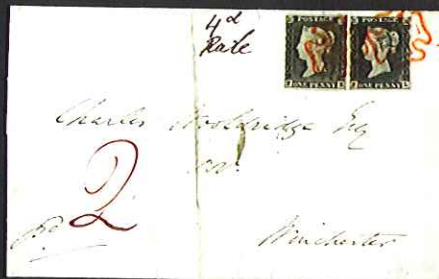 4d
Rate
POSTAGE POSTAGE
ONE PENNY ONE PENNY
Charles Wooldridge Esq
2
Winchester